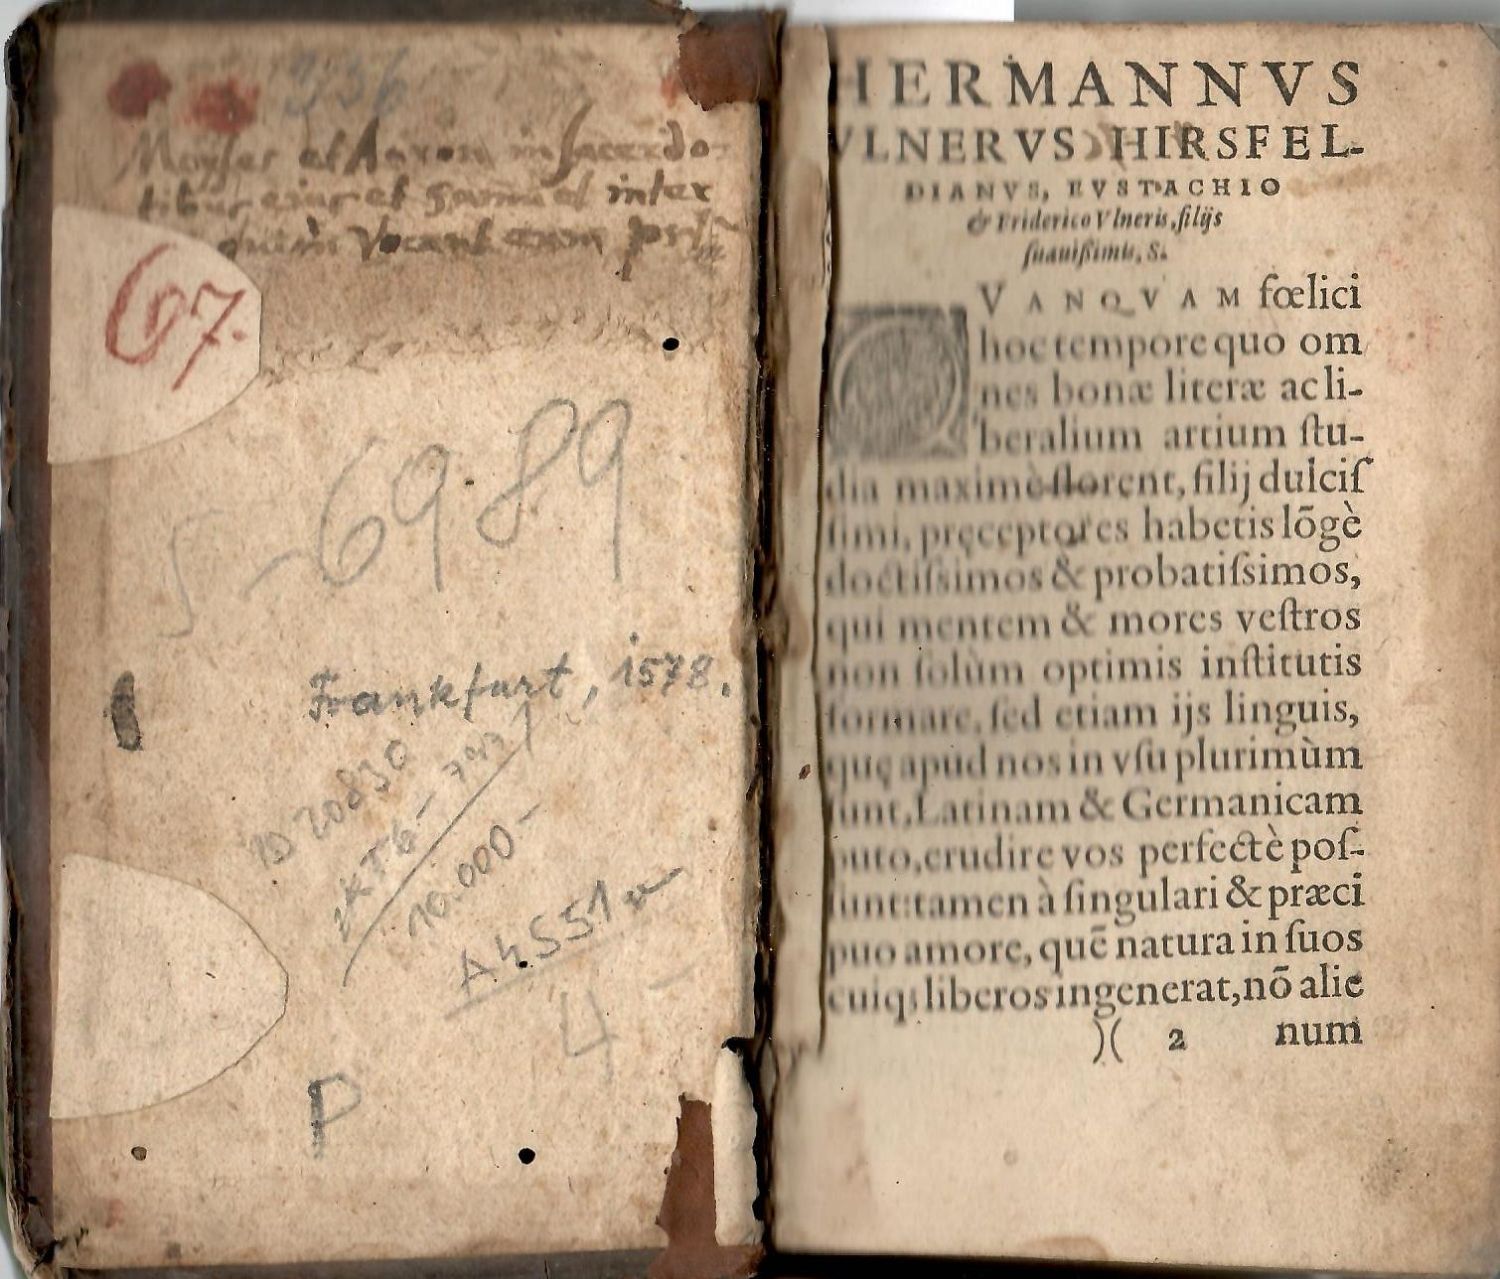 336
Moyses et Aaron in sacerdo-
tibus eius et Samuel inter
qui vocant
67.
S-69.89
Frankfurt, 1578.
10.000-
A4551
4
P
HERMANNVS
VLNERVS HIRSFEL-
DIANVS, EVSTACHIO
& Friderico Vlneris, filijs
suauißimis, S.
QVANQVAM fœlici
hoc tempore quo om
nes bonæ literæ ac li-
beralium artium stu-
dia maximè florent, filij dulcis
simi, pręceptores habetis lōgè
doctissimos & probatissimos,
qui mentem & mores vestros
non solùm optimis institutis
formare, sed etiam ijs linguis,
quę apud nos in vsu plurimùm
sunt, Latinam & Germanicam
puto, erudire vos perfectè pos-
sunt: tamen à singulari & præci
puo amore, quē natura in suos
cuiq; liberos ingenerat, nō alie
)( 2 num